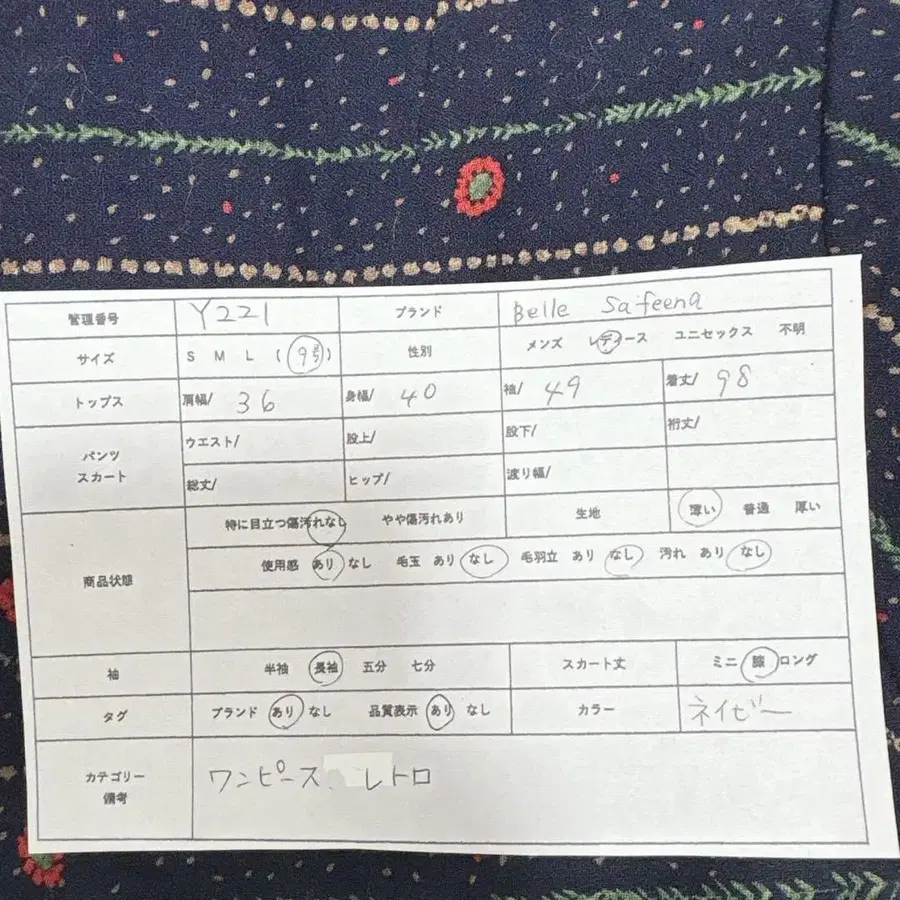 管理番号 Y221 ブランド Belle Safeena
サイズ S M L ( 9号 ) 性別 メンズ レディース ユニセックス 不明
トップス 肩幅/ 36 身幅/ 40 袖/ 49 着丈/ 98
パンツ スカート ウエスト/ 股上/ 股下/ 裄丈/
総丈/ ヒップ/ 渡り幅/
商品状態 特に目立つ傷汚れなし やや傷汚れあり 生地 薄い 普通 厚い
使用感 あり なし 毛玉 あり なし 毛羽立 あり なし 汚れ あり なし
袖 半袖 長袖 五分 七分 スカート丈 ミニ 膝 ロング
タグ ブランド あり なし 品質表示 あり なし カラー ネイビー
カテゴリー 備考 ワンピース レトロ